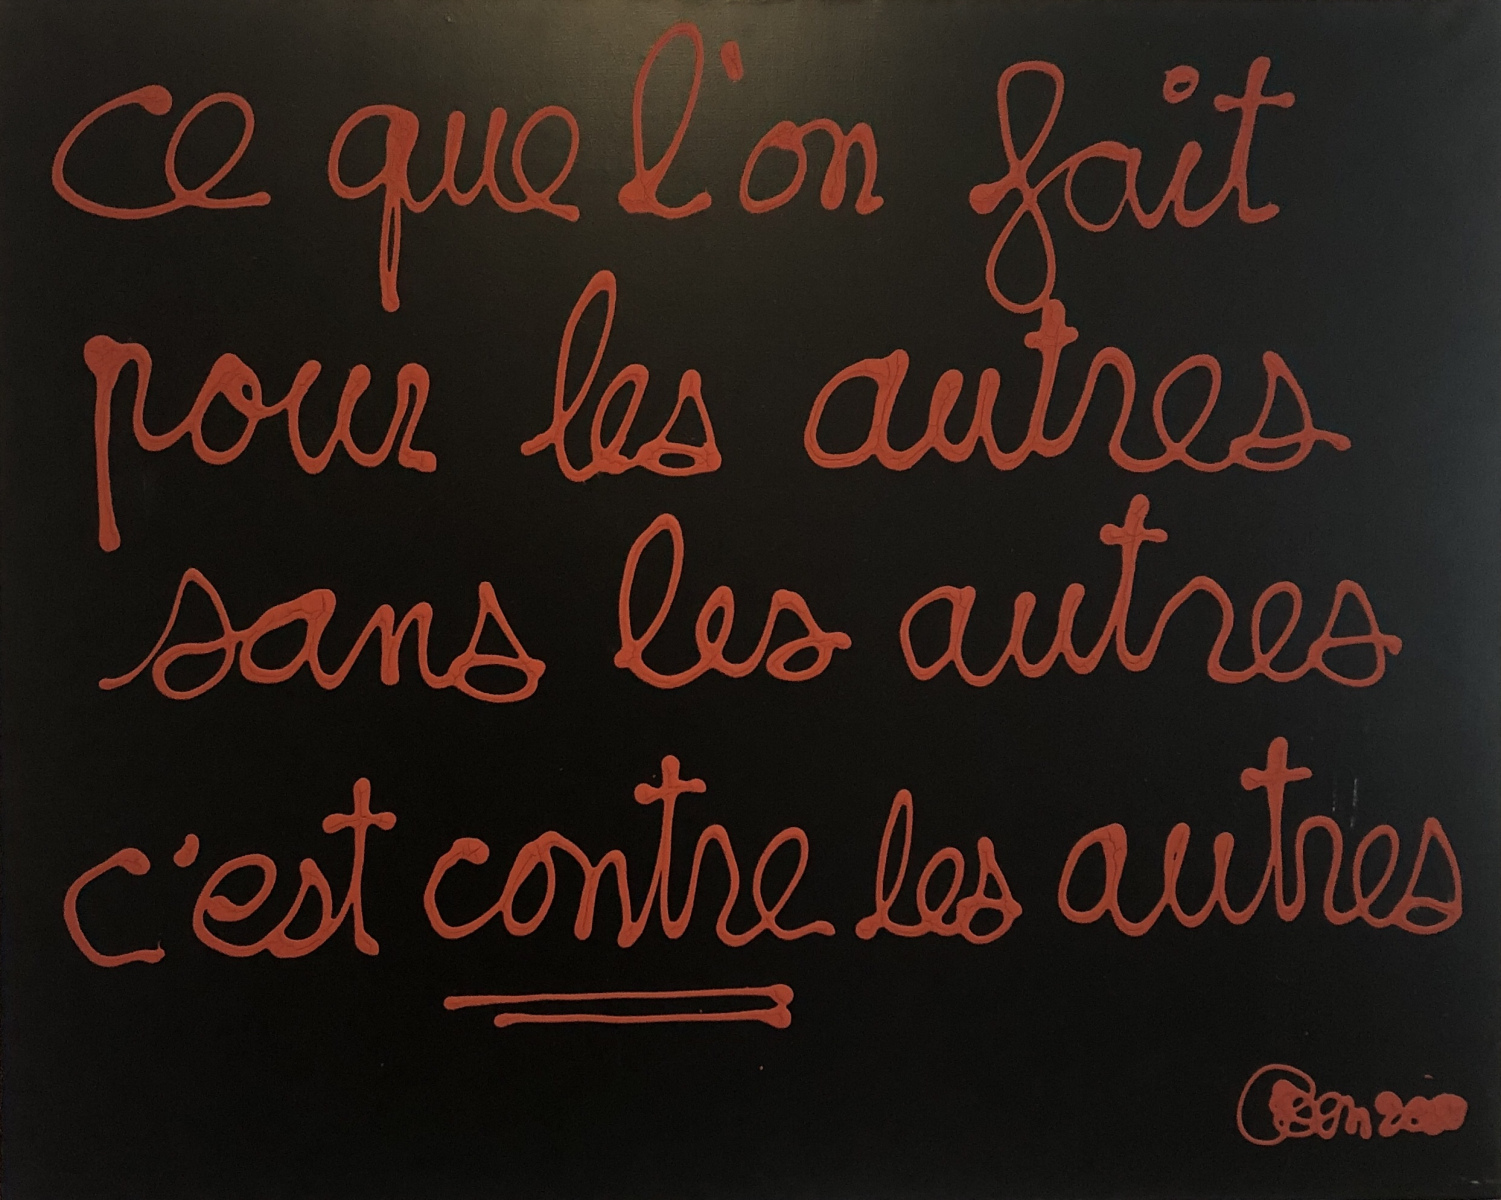 ce que l'on fait
pour les autres
sans les autres
c'est contre les autres
Ben